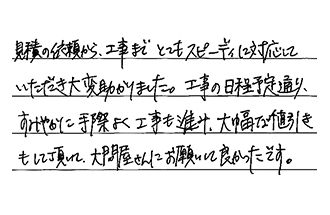 見積の依頼から、工事まで とてもスピーディに対応して
いただき大変助かりました。工事の日程予定通り、
すみやかに手際よく工事も進み、大幅な値引き
もして頂いて、大問屋さんにお願いして良かったです。